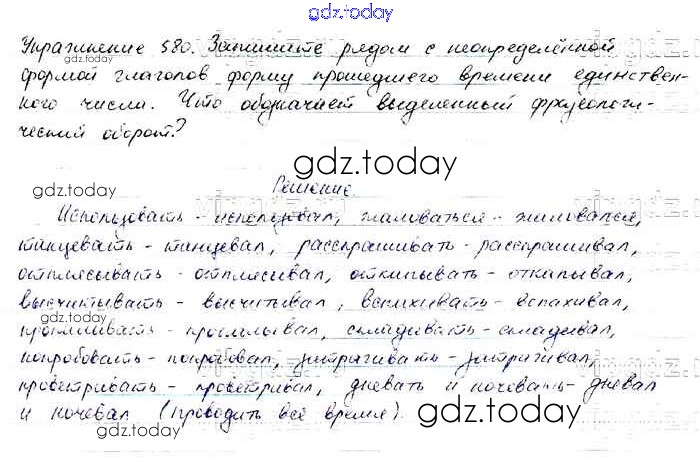 gdz.today
Упражнение 580. Запишите рядом с неопределённой
формой глаголов форму прошедшего времени единствен-
ного числа. Что обозначает выделенный фразеологи-
ческий оборот?
gdz.today
gdz.today
Решение
Использовать - использовал, жаловаться - жаловался,
танцевать - танцевал, расспрашивать - расспрашивал,
отплясывать - отплясывал, откапывать - откапывал,
высчитывать - высчитывал, вспахивать - вспахивал,
проглатывать - проглатывал, складывать - складывал,
попробовать - попробовал, затрагивать - затрагивал,
проветривать - проветривал, дневать и ночевать - дневал
и ночевал (проводить всё время).
gdz.today
gdz.today